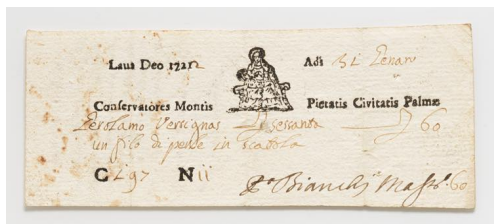 Laus Deo 1722 Adì 31 Genaro
Conservatores Montis Pietatis Civitatis Palmæ
Gerolamo Versignas sessanta 60
un filo di perle in scattola
C 297 N ii
Bianchi Mass.o 60